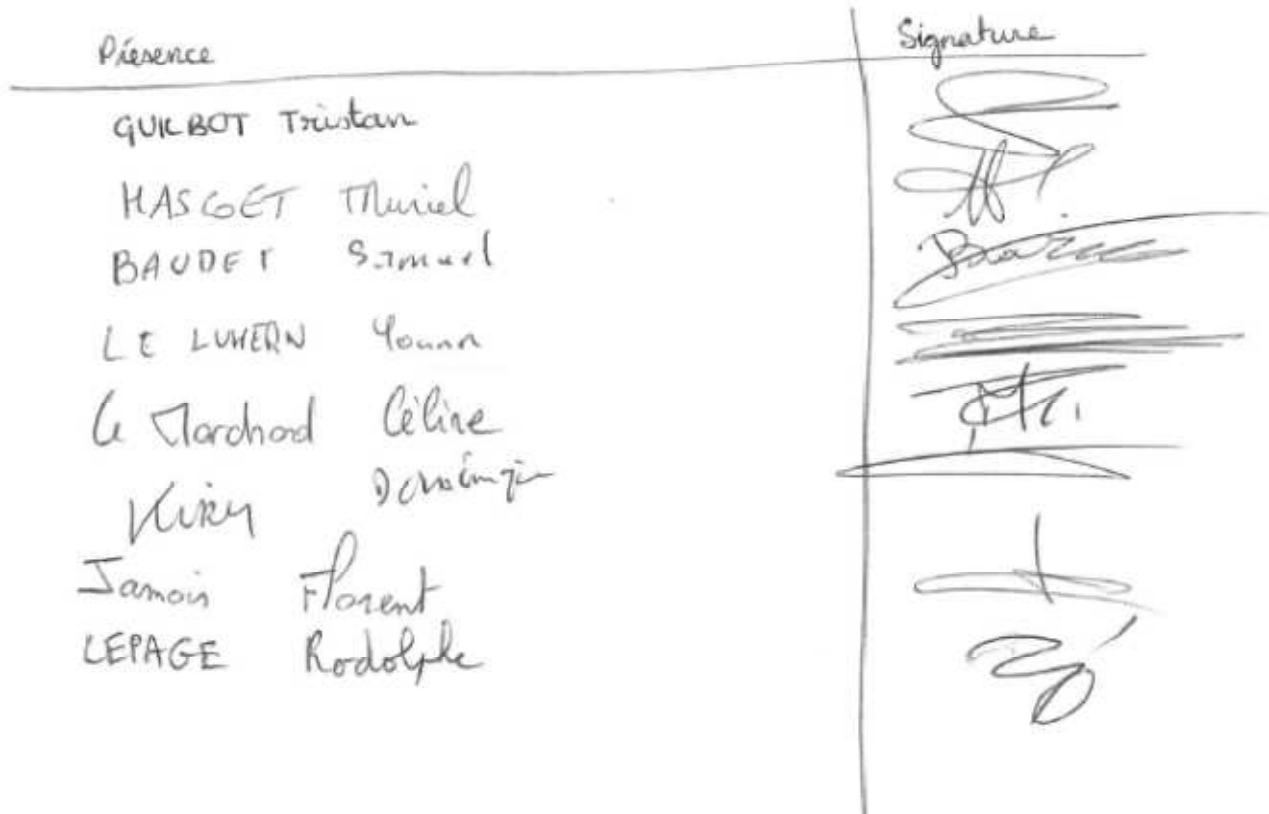 Présence Signature
GUILBOT Tristan
MASGET Muriel
BAUDET Samuel
LE LUHERN Younn
Le Marchad Céline
Dominique
Jamois Florent
LEPAGE Rodolphe